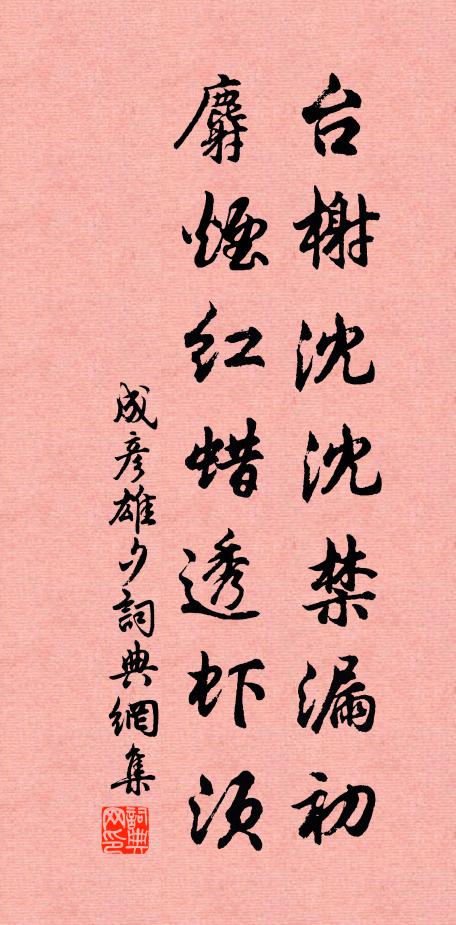 台榭沈沈禁漏初
麝煙红蜡透虾须
成彦雄夕詞典網集
詞典网印